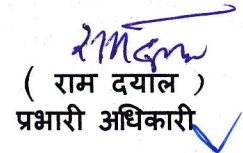 ( राम दयाल )
प्रभारी अधिकारी